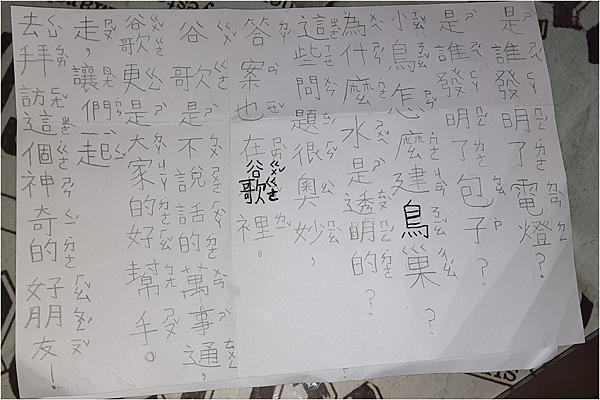 是誰發明了電燈?
是誰發明了包子?
鳥怎麼建鳥巢?
為什麼水是透明的?
這些問題很奧妙,
答案也在谷歌裡。
谷歌是不說話的萬事通,
谷歌更是大家的好幫手。
走,讓們一起
去拜訪這個神奇的好朋友!